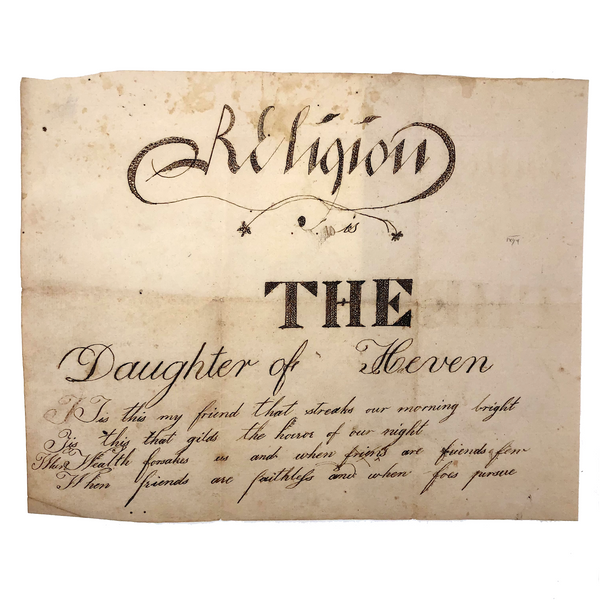 Religion
is
THE
Daughter of Heven
Tis this my friend that streaks our morning bright
Tis this that gilds the horror of our night
When Wealth forsakes us and when friends are friends few
When friends are faithless and when foes pursue